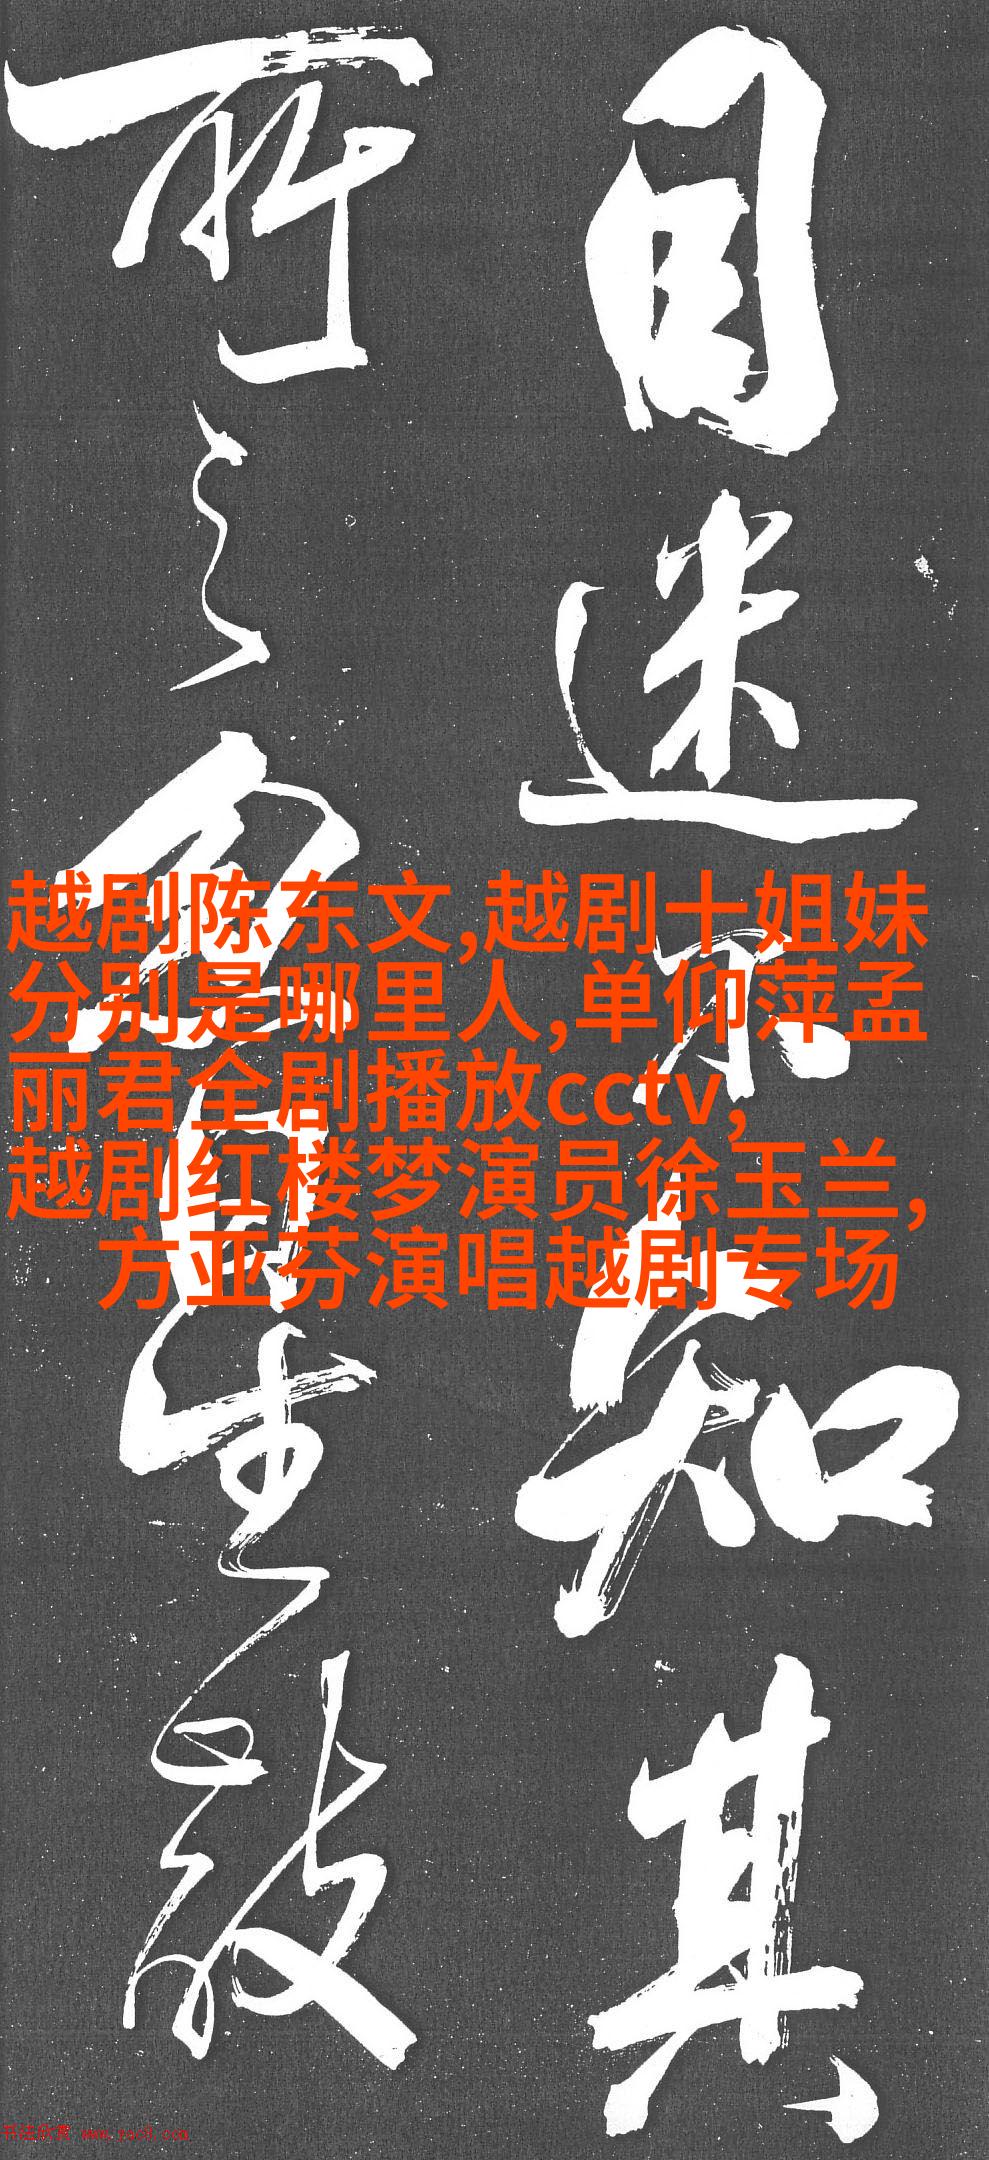 目迷不知其
所之生
越剧陈东文,越剧十姐妹
分别是哪里人,单仰萍孟
丽君全剧播放cctv,
越剧红楼梦演员徐玉兰,
方亚芬演唱越剧专场